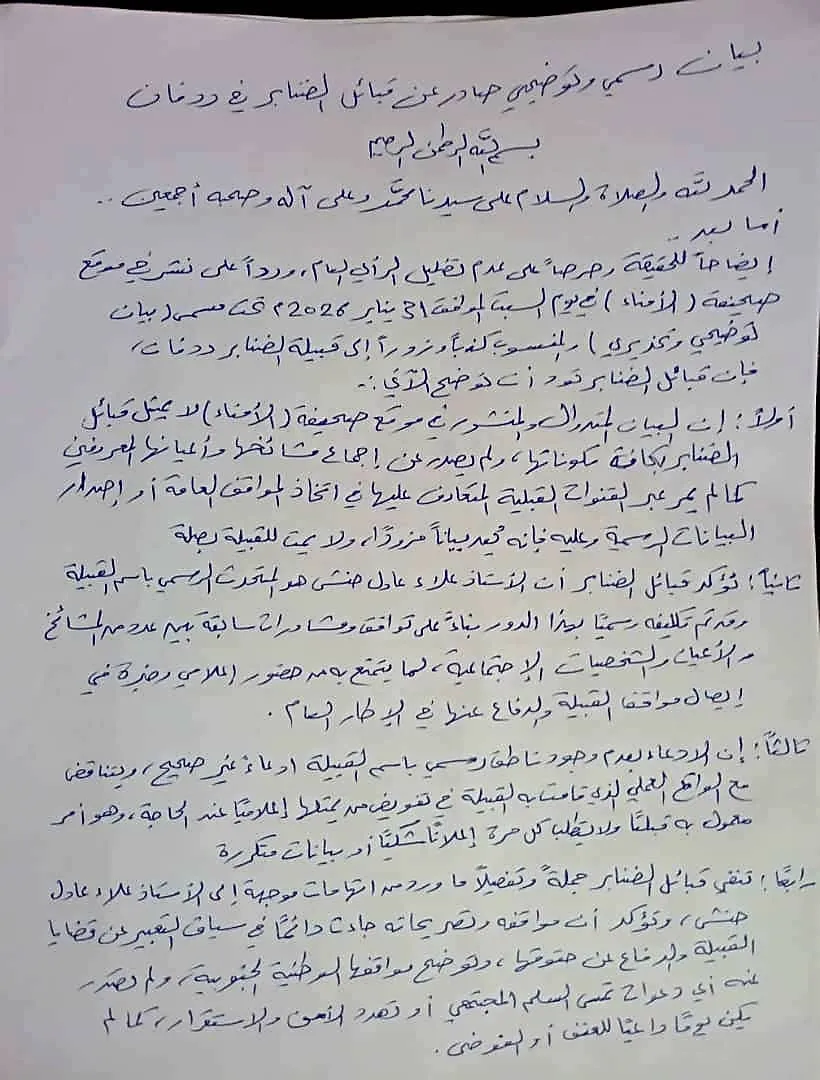 بيان رسمي وتوضيحي صادر عن قبائل الضنابر في ردفان
بسم الله الرحمن الرحيم
الحمد لله والصلاة والسلام على سيدنا محمد وعلى آله وصحبه أجمعين ..
أما بعد ..
إيضاحاً للحقيقة وحرصاً على عدم تضليل الرأي العام، ورداً على نشر في موقع
صحيفة (الأمناء) في يوم السبت الموافق 31 يناير 2026م تحت مسمى (بيان
توضيحي وتحذيري) والمنسوب كذباً وزوراً إلى قبيلة الضنابر ردفان،
فإن قبائل الضنابر تود أن توضح الآتي :-
أولاً: إن البيان المتداول والمنشور في موقع صحيفة (الأمناء) لا يمثل قبائل
الضنابر بكافة مكوناتها، ولم يصدر عن إجماع مشائخها وأعيانها المعروفين
كما لم يمر عبر القنوات القبلية المتعارف عليها في اتخاذ المواقف العامة أو إصدار
البيانات الرسمية وعليه فإنه يعد بياناً مزوراً، ولا يمت للقبيلة بصلة
ثانياً: تؤكد قبائل الضنابر أن الأستاذ علاء عادل حنش هو المتحدث الرسمي باسم القبيلة
وقد تم تكليفه رسمياً بهذا الدور بناءً على توافق ومشاورات سابقة بين عدد من المشائخ
والأعيان والشخصيات الإجتماعية، لما يتمتع به من حضور إعلامي وخبرة في
إيصال مواقف القبيلة والدفاع عنها في الإطار العام .
ثالثاً: إن الادعاء بعدم وجود ناطق رسمي باسم القبيلة ادعاء غير صحيح، ويتناقض
مع الواقع العملي الذي قامت به القبيلة في تفويض من يمثلها إعلامياً عند الحاجة، وهو أمر
معمول به قبلياً ولا يتطلب كل مرة إعلاناً شكلياً أو بيانات متكررة
رابعاً: تنفي قبائل الضنابر جملةً وتفصيلاً ما ورد من اتهامات موجهة إلى الأستاذ علاء عادل
حنش، وتؤكد أن مواقفه وتصريحاته جاءت دائماً في سياق التعبير عن قضايا
القبيلة والدفاع عن حقوقها، وتوضح مواقفها الوطنية الجنوبية، ولم تصدر
عنه أي دعوات تمس السلم المجتمعي أو تهدد الأمن والاستقرار، كما لم
يكن يوماً داعياً للعنف أو الفوضى .